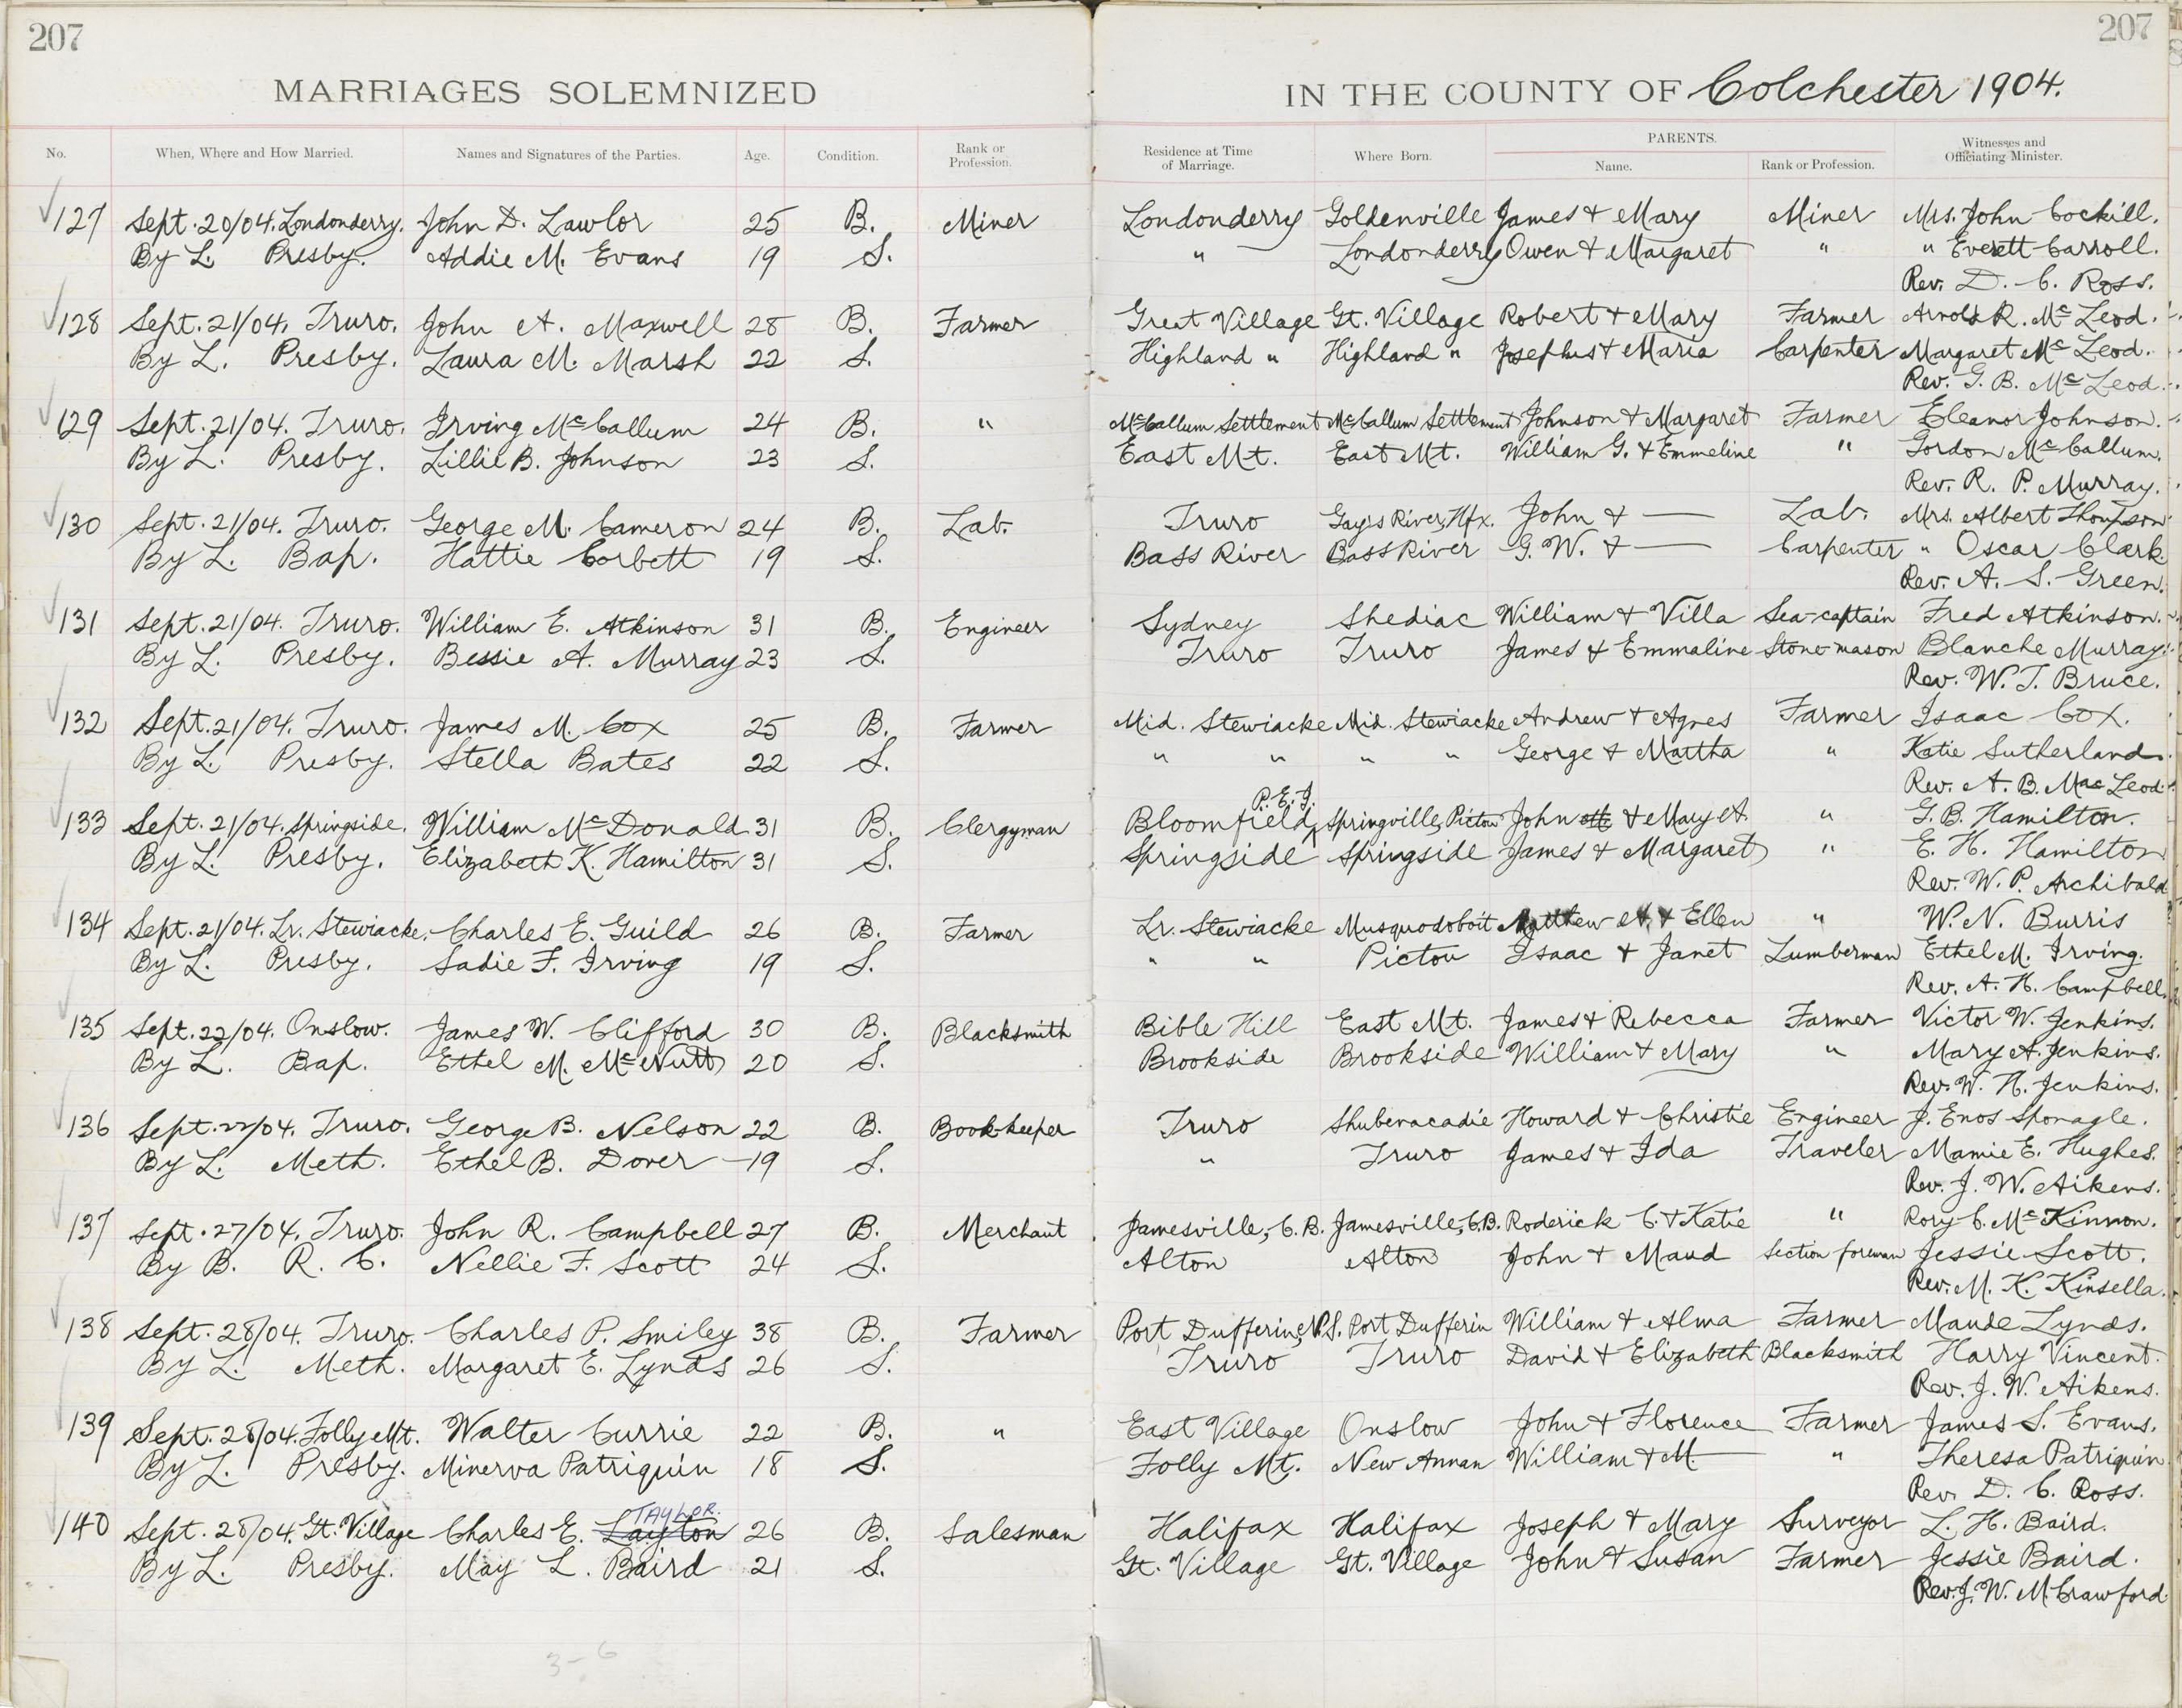 207
207
MARRIAGES SOLEMNIZED
IN THE COUNTY OF Colchester 1904.
No. When, Where and How Married. Names and Signatures of the Parties. Age. Condition. Rank or Profession. Residence at Time of Marriage. Where Born. PARENTS. Name. Rank or Profession. Witnesses and Officiating Minister.
127 Sept. 20/04. Londonderry. John D. Lawlor 25 B. Miner Londonderry Goldenville James & Mary Miner Mrs. John Cockill.
By L. Presby. Addie M. Evans 19 S. " Londonderry Owen & Margaret " " Everett Carroll.
Rev. D. C. Ross.
128 Sept. 21/04. Truro. John A. Maxwell 28 B. Farmer Great Village Gt. Village Robert & Mary Farmer Arnold R. McLeod.
By L. Presby. Laura M. Marsh 22 S. Highland " Highland " Josephus & Maria Carpenter Margaret McLeod.
Rev. G. B. McLeod.
129 Sept. 21/04. Truro. Irving McCallum 24 B. " McCallum Settlement McCallum Settlement Johnson & Margaret Farmer Eleanor Johnson.
By L. Presby. Lillie B. Johnson 23 S. East Mt. East Mt. William G. & Emmeline " Gordon McCallum.
Rev. R. P. Murray.
130 Sept. 21/04. Truro. George M. Cameron 24 B. Lab. Truro Gay's River, Hfx. John & — Lab. Mrs. Albert Thompson
By L. Bap. Hattie Corbett 19 S. Bass River Bass River G. W. & — Carpenter " Oscar Clark
Rev. A. S. Green.
131 Sept. 21/04. Truro. William E. Atkinson 31 B. Engineer Sydney Shediac William & Villa Sea-captain Fred Atkinson.
By L. Presby. Bessie A. Murray 23 S. Truro Truro James & Emmaline Stone-mason Blanche Murray.
Rev. W. T. Bruce.
132 Sept. 21/04. Truro. James M. Cox 25 B. Farmer Mid. Stewiacke Mid. Stewiacke Andrew & Agnes Farmer Isaac Cox.
By L. Presby. Stella Bates 22 S. " " " " George & Martha " Katie Sutherland.
Rev. A. B. MacLeod.
P. E. I.
133 Sept. 21/04. Springside. William McDonald 31 B. Clergyman Bloomfield, Springville, Pictou John & Mary A. " G. B. Hamilton.
By L. Presby. Elizabeth K. Hamilton 31 S. Springside Springside James & Margaret " E. H. Hamilton
Rev. W. P. Archibald
134 Sept. 21/04. Lr. Stewiacke. Charles E. Guild 26 B. Farmer Lr. Stewiacke Musquodoboit Matthew A. & Ellen " W. N. Burris
By L. Presby. Sadie F. Irving 19 S. " " Pictou Isaac & Janet Lumberman Ethel M. Irving.
Rev. A. H. Campbell.
135 Sept. 22/04. Onslow. James W. Clifford 30 B. Blacksmith Bible Hill East Mt. James & Rebecca Farmer Victor W. Jenkins.
By L. Bap. Ethel M. McNutt 20 S. Brookside Brookside William & Mary " Mary A. Jenkins.
Rev. W. H. Jenkins.
136 Sept. 22/04. Truro. George B. Nelson 22 B. Book-keeper Truro Shubenacadie Howard & Christie Engineer J. Enos Sponagle.
By L. Meth. Ethel B. Dover — 19 S. " Truro James & Ida Traveler Mamie E. Hughes.
Rev. J. W. Aikens.
137 Sept. 27/04. Truro. John R. Campbell 27 B. Merchant Jamesville, C. B. Jamesville, C.B. Roderick C. & Katie " Rory C. McKinnon.
By B. R. C. Nellie F. Scott 24 S. Alton Alton John & Maud Section foreman Jessie Scott.
Rev. M. K. Kinsella.
138 Sept. 28/04. Truro. Charles P. Smiley 38 B. Farmer Port Dufferin, N.S. Port Dufferin William & Alma Farmer Maude Lynds.
By L. Meth. Margaret E. Lynds 26 S. Truro Truro David & Elizabeth Blacksmith Harry Vincent.
Rev. J. W. Aikens.
139 Sept. 28/04. Folly Mt. Walter Currie 22 B. " East Village Onslow John & Florence Farmer James S. Evans.
By L. Presby. Minerva Patriquin 18 S. Folly Mt. New Annan William & M— " Theresa Patriquin
Rev. D. C. Ross.
TAYLOR.
140 Sept. 28/04. Gt. Village Charles E. Layton 26 B. Salesman Halifax Halifax Joseph & Mary Surveyor L. H. Baird.
By L. Presby. May L. Baird 21 S. Gt. Village Gt. Village John & Susan Farmer Jessie Baird.
Rev. J. W. McCrawford
3-6